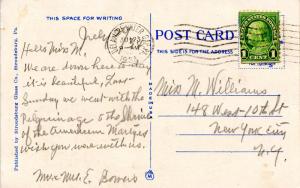 THIS SPACE FOR WRITING
POST CARD
THIS SIDE IS FOR THE ADDRESS
Hello Miss M.
We are down here today
it is beautiful, Last
Sunday we went with the
Pilgrimage to the Shrine
of the American Martyrs
Wish you were with us.
Mr & Mrs. E. Bowers
Miss M. Williams
148 West-10th St
New York City
N.Y.
Published by Stroudsburg Glass Co., Stroudsburg, Pa.
1 CENT 1